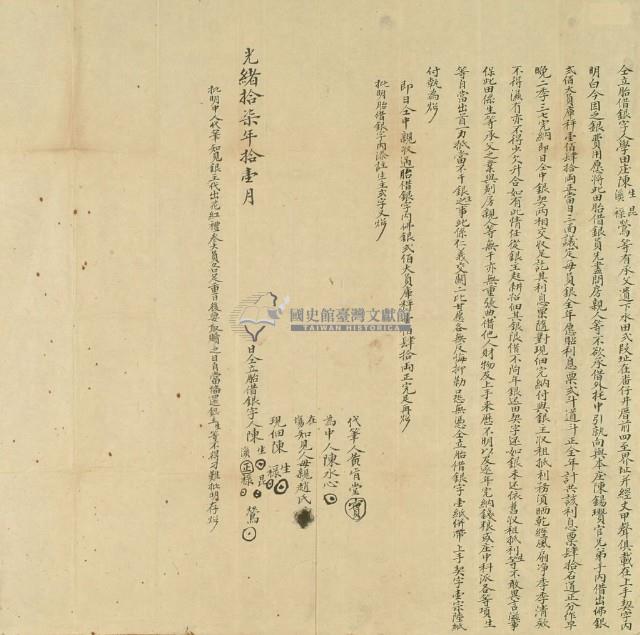 仝立胎借銀字人學田庄陳生漢祿昆鶯等有承父遺下水田弍段址在畓仔井厝前四至界址并經丈甲聲俱載在上手契字內
明白今因乏銀費用應將此田胎借銀員先盡問房親人等不欲承借外托中引就向與本庄陳錫瓚官兄弟手內借出佛銀
弍佰大員庫秤壹佰肆拾兩正當日三面議定每員銀全年應貼利息粟弍斗道斗正全年計共該利息粟肆拾石道正分作早
晚二季三七完納即日仝中銀契兩相交收足訖其利息粟隨對現佃完納付與銀主收租抵利務須晒乾經風扇凈季季清款
不得濕冇亦不得少欠升合如有此情任從銀主起耕招佃其銀限借不尚年銀還田契字還如銀未還依舊收租抵利生等不敢異言滋事
保此田係生等承父之業與別房親人等無干亦無重張典借他人財物及上手來歷不明以及遞年完納錢粮或庄中科派各等項生
等自當出首一力抵當不干銀主之事此係仁義交關二比甘愿各無反悔抑勒恐口無憑仝立胎借銀字壹紙併帶上手契字壹宗陸紙
付執為炤
即日仝中親收過胎借銀字內佛銀弍佰大員庫秤壹佰肆拾兩正完足再炤
批明胎借銀字內添註生主弍字又炤
代筆人黃宜堂
為中人陳永心
在場知見人母親趙氏
現佃陳生祿
日仝立胎借銀字人陳生漢昆祿鶯
光緒拾柒年拾壹月
批明中人代筆知見銀主代出花紅禮叁大員合足重日後要取贖之日自當備還銀主生等不得刁難批明存炤
國史館臺灣文獻館
TAIWAN HISTORICA